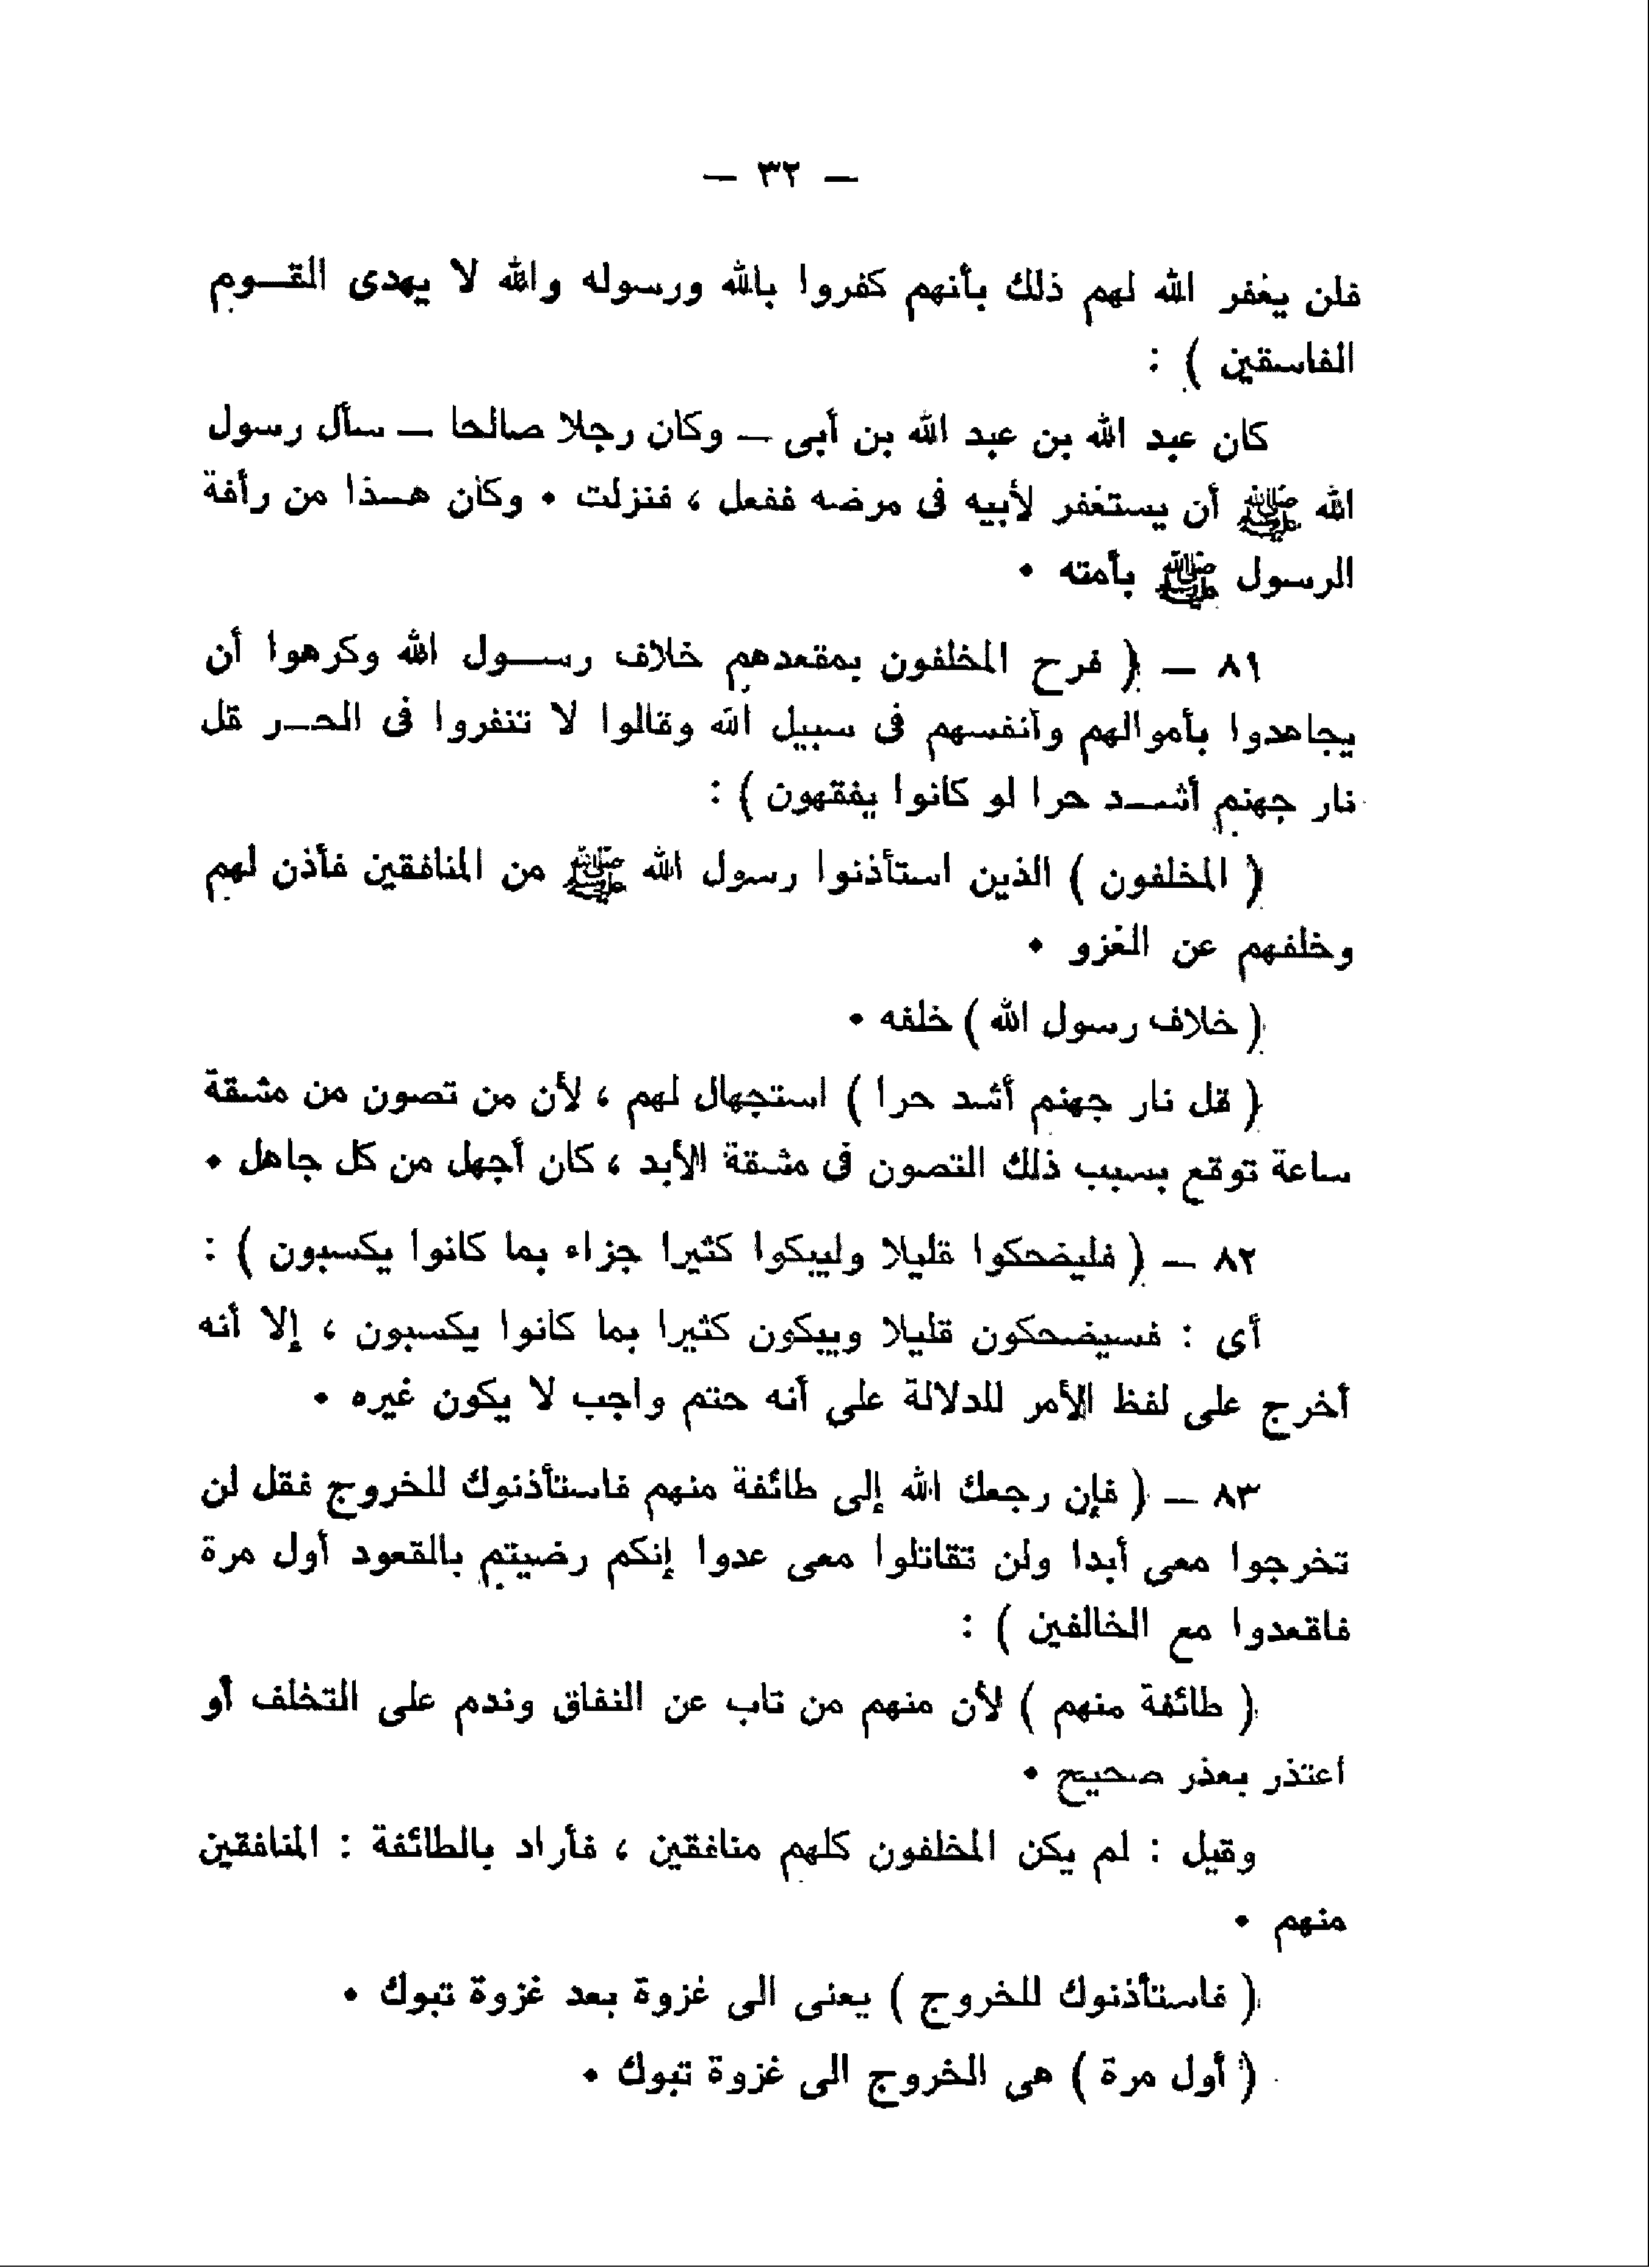 — ٣٢ —
فلن يغفر الله لهم ذلك بأنهم كفروا بالله ورسوله والله لا يهدى القـــوم
الفاسقين ) :
كان عبد الله بن عبد الله بن أبى — وكان رجلا صالحا — سأل رسول
الله ﷺ أن يستغفر لأبيه فى مرضه ففعل ، فنزلت • وكان هــذا من رأفة
الرسول ﷺ بأمته •
٨١ — ( فرح المخلفون بمقعدهم خلاف رســـول الله وكرهوا أن
يجاهدوا بأموالهم وأنفسهم فى سبيل الله وقالوا لا تنفروا فى الحــر قل
نار جهنم أشـــد حرا لو كانوا يفقهون ) :
( المخلفون ) الذين استأذنوا رسول الله ﷺ من المنافقين فأذن لهم
وخلفهم عن الغزو •
( خلاف رسول الله ) خلفه •
( قل نار جهنم أشد حرا ) استجهال لهم ، لأن من تصون من مشقة
ساعة توقع بسبب ذلك التصون فى مشقة الأبد ، كان أجهل من كل جاهل •
٨٢ — ( فليضحكوا قليلا وليبكوا كثيرا جزاء بما كانوا يكسبون ) :
أى : فسيضحكون قليلا ويبكون كثيرا بما كانوا يكسبون ، إلا أنه
أخرج على لفظ الأمر للدلالة على أنه حتم واجب لا يكون غيره •
٨٣ — ( فإن رجعك الله إلى طائفة منهم فاستأذنوك للخروج فقل لن
تخرجوا معى أبدا ولن تقاتلوا معى عدوا إنكم رضيتم بالقعود أول مرة
فاقعدوا مع الخالفين ) :
( طائفة منهم ) لأن منهم من تاب عن النفاق وندم على التخلف أو
اعتذر بعذر صحيح •
وقيل : لم يكن المخلفون كلهم منافقين ، فأراد بالطائفة : المنافقين
منهم •
( فاستأذنوك للخروج ) يعنى الى غزوة بعد غزوة تبوك •
( أول مرة ) هى الخروج الى غزوة تبوك •